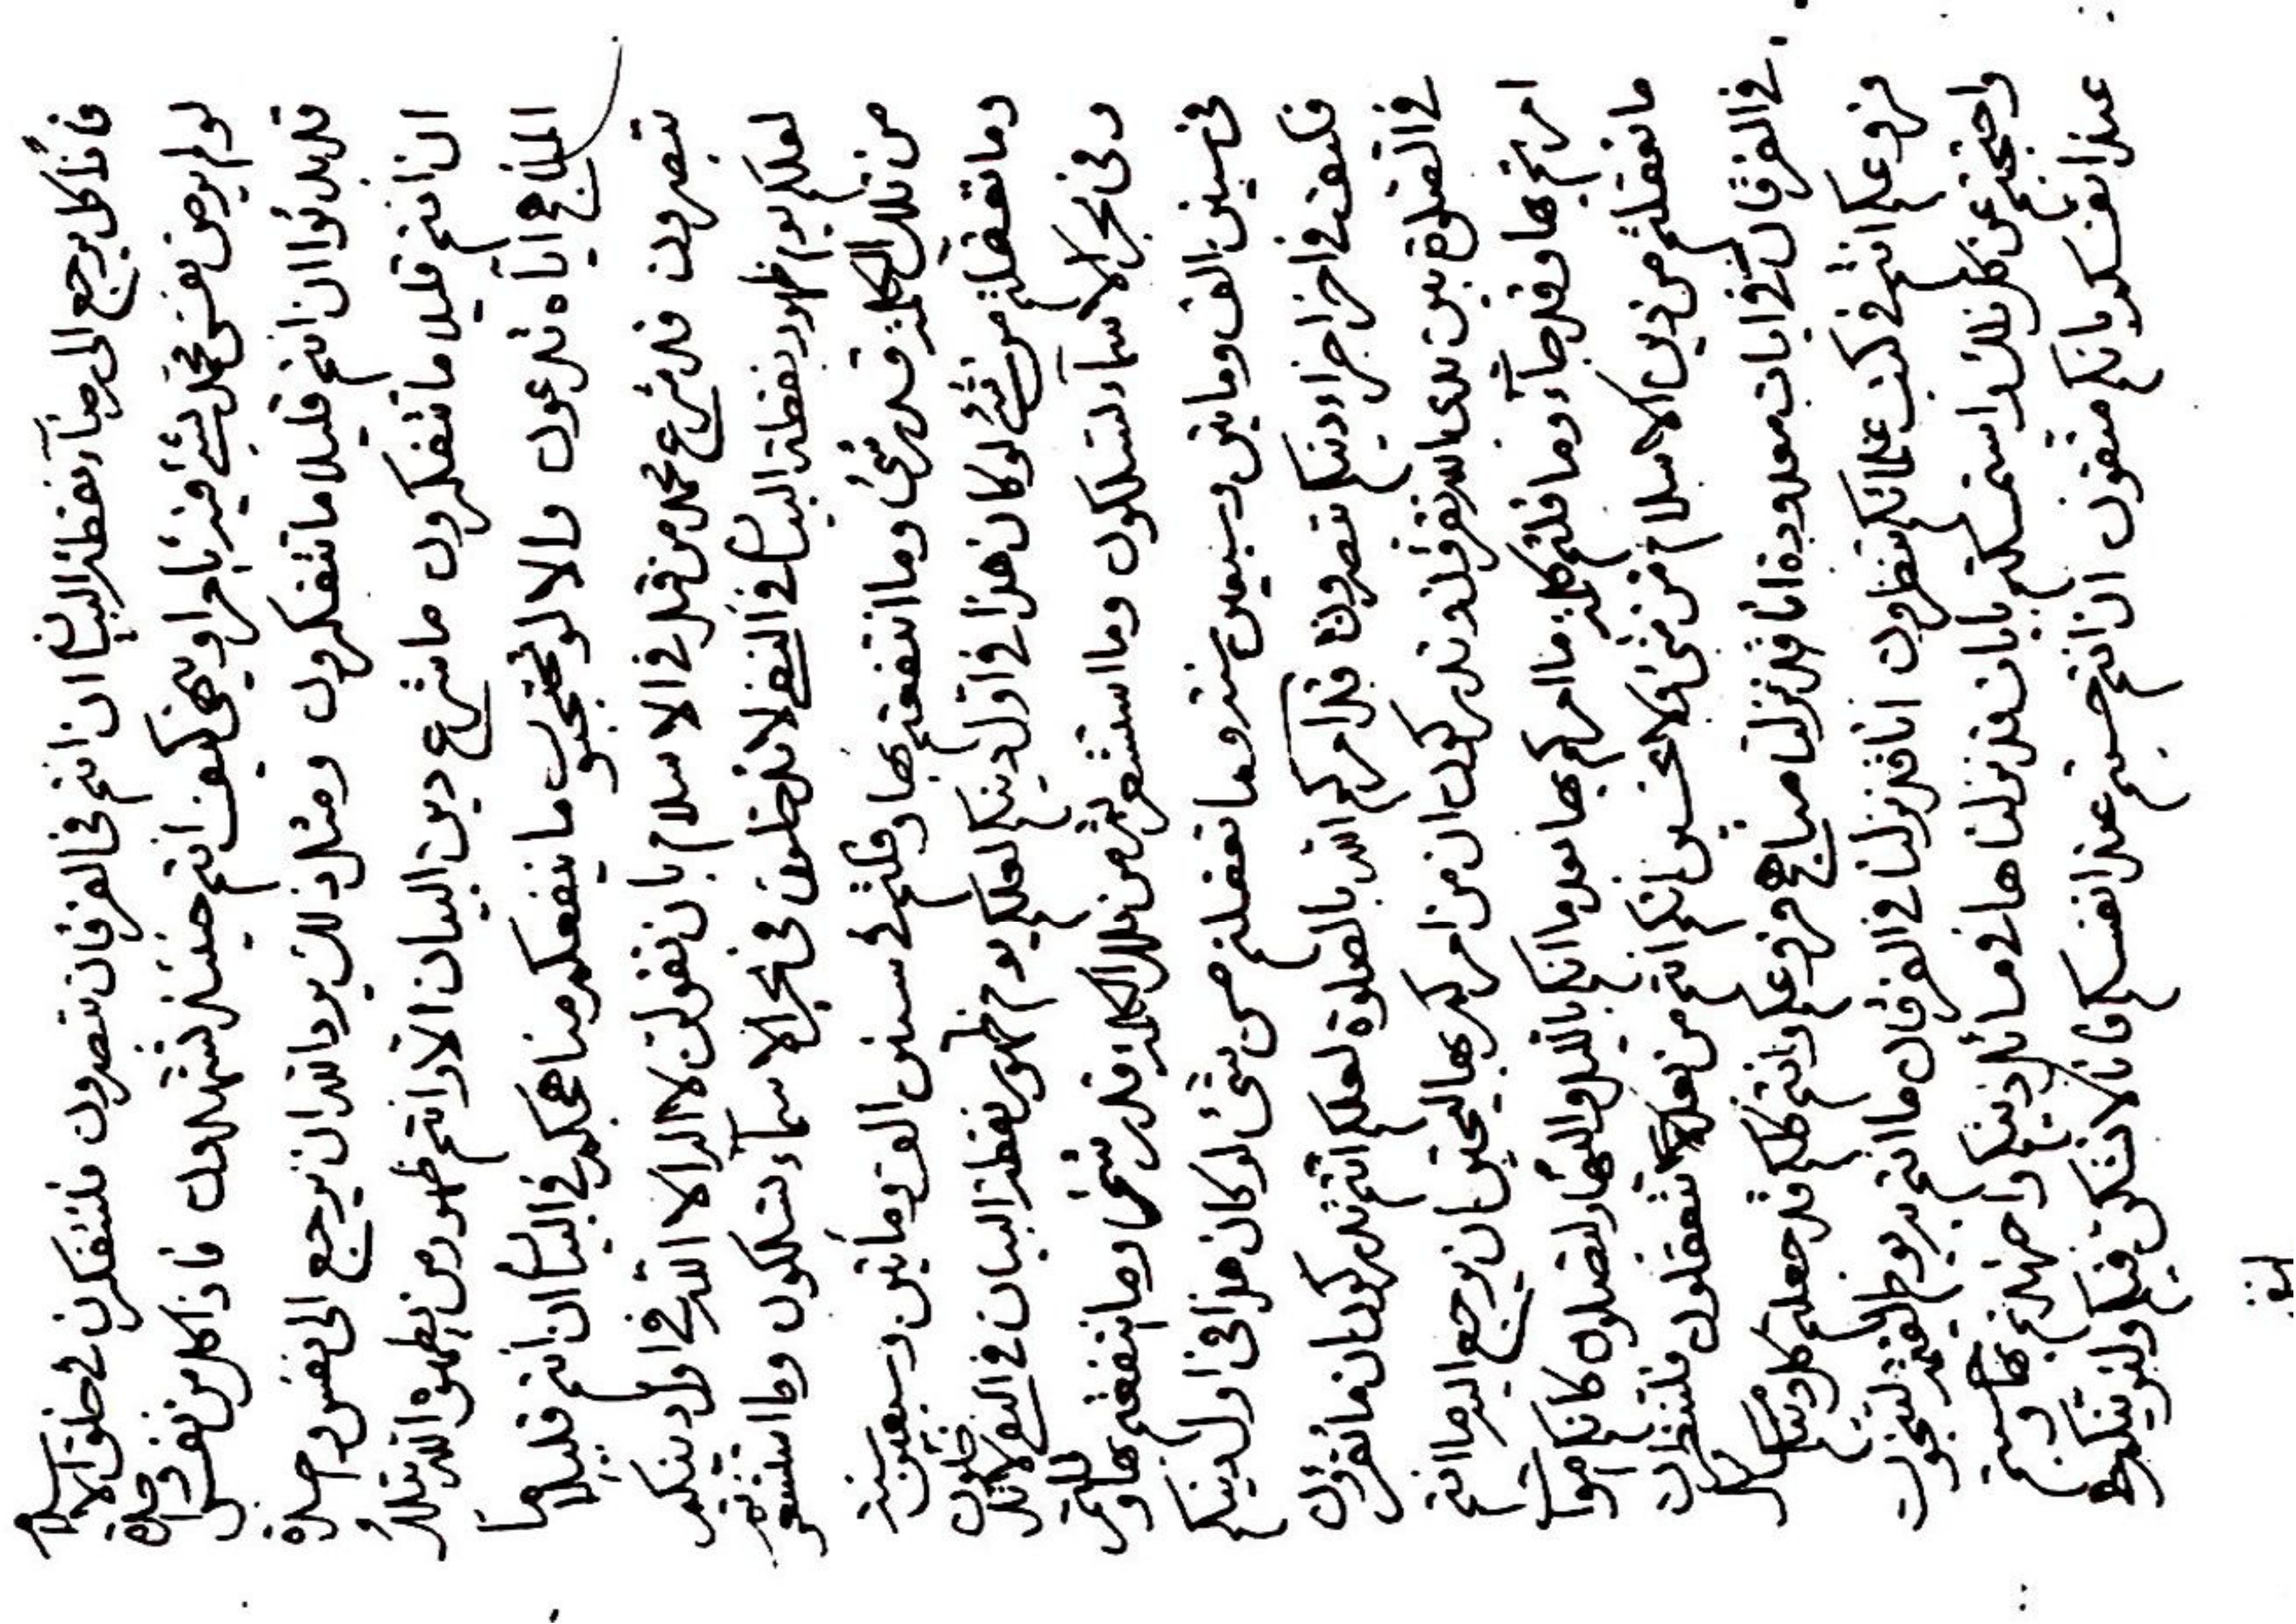 فانا كل يرجع الى رضآء نقطة البيان ان انتم في الفرقان تبصرون فلتتفكرن في خلق الاسلام
لو لم يرض نفس محمد بشئ فيه يامر او ينهى كيف انتم حينئذ تشهدون فاذا كل من نفس واحدة
قد بدئوا ان انتم قليلا ما تتفكرون ومثل ذلك يرد الله ان يرجع الى نفس واحدة
ان انتم قليلا ما تتفكرون ما شرع دين البيان الا وانتم ظهور من يظهره الله بذلك
المناهج اياه تدعون والا لو تحتجبون ما ينفعكم مناهجكم في البيان ان انتم قليلا ما
تبصرون قد شرع محمد من قبل في الاسلام بان تقولن لا اله الا الله في اول دينكم
لعلكم يوم ظهور نقطة البيان في النفي لا تدخلون في بحر الاسمآء تسلكون وما استشعرتم
من تلك الكلمة قدر شئ وما انتفعتم بها وقلتم في سنين الف ومأتين وسبعين سنة
وما تعقلتم من شئ لو كان هذا في اول دينكم لعلكم يوم ظهور نقطة البيان في النفي لا تدخلون
وفي بحر الاسمآء لتسلكون وما استشعرتم من تلك الكلمة قدر شئ وما انتفعتم بها وقلتم
في سنين الف ومأتين وسبعين سنة وما تعقلتم من شئ لو كان هذا في اول دينكم
فكيف في اخر اجزاء دينكم تصدون قد امركم الله بالصلوة لعلكم انتم تدركون ان ما تقرؤن
في الصلوة بين يدي الله تقرؤن وتدركون ان من امركم بها ليحق ان يرجع اليه ما انتم
امرتم بها وقد جآء وما قلتم كلمة ما امركم بها بعد ما انكم بالليل والنهار لتصلون كانكم اموات
ما تعقلتم من دين الاسلام من شئ ولا تحسبن انكم انتم من بعد لا تعقلون فلتنظرن
في الفرقان في ايات معدودة انا قد نزلنا مناهج فروعكم وانتم كلكم قد جعلتم كل دينكم
فروعكم انتم في كتب علمائكم تنظرون انا قد نزلنا في الفرقان ما انتم به يوم القيمة لتنجون
واحتجبتم عن كل ذلك واستمسكتم بايات قد نزلناها في مسائل دينكم واجتهدتم بها وحسبتم
عند انفسكم بانكم متقون ان انتم حسبتم عند انفسكم فانا لا نشكن فيكم ولنوتينكم